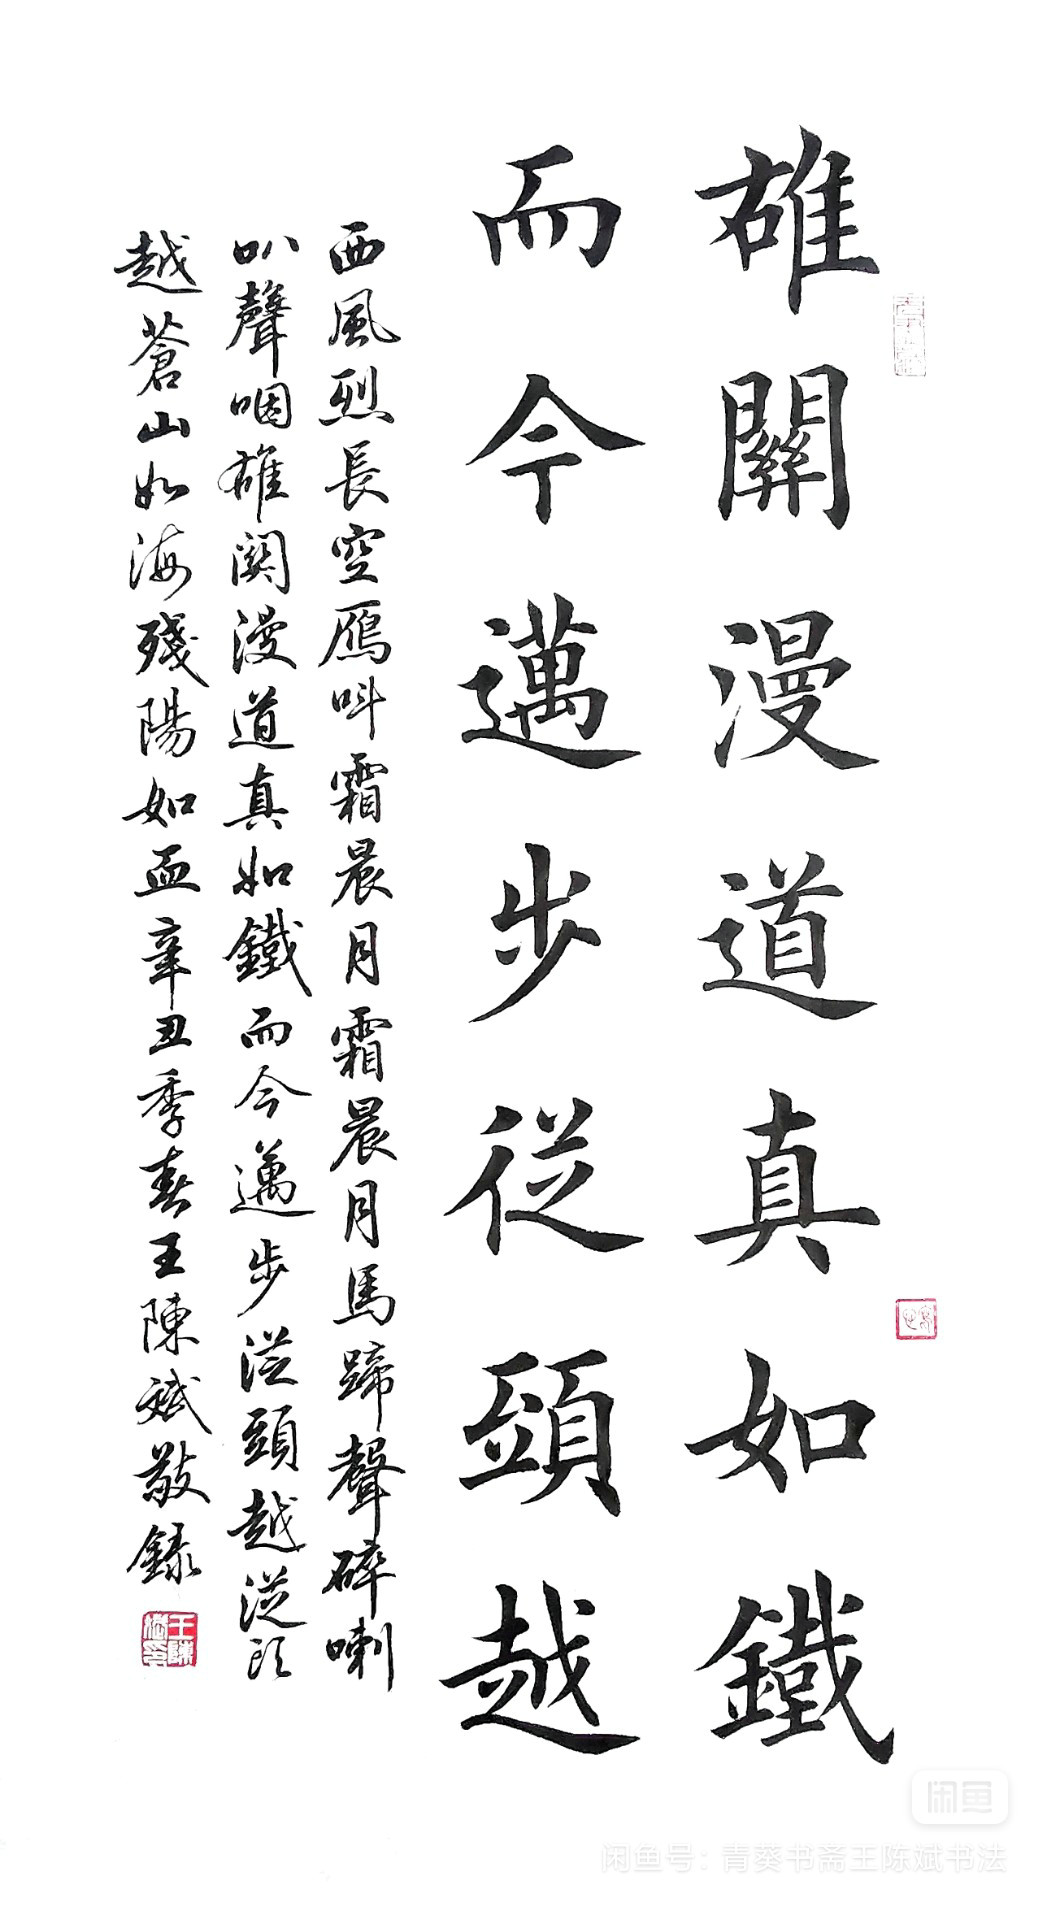 雄關漫道真如鐵
而今邁步從頭越
西風烈長空雁叫霜晨月霜晨月馬蹄聲碎喇
叭聲咽雄関漫道真如鐵而今邁步從頭越從頭
越蒼山如海殘陽如血辛丑季春王陳斌敬錄
王陳斌印
闲鱼
闲鱼号：青葵书斋王陈斌书法